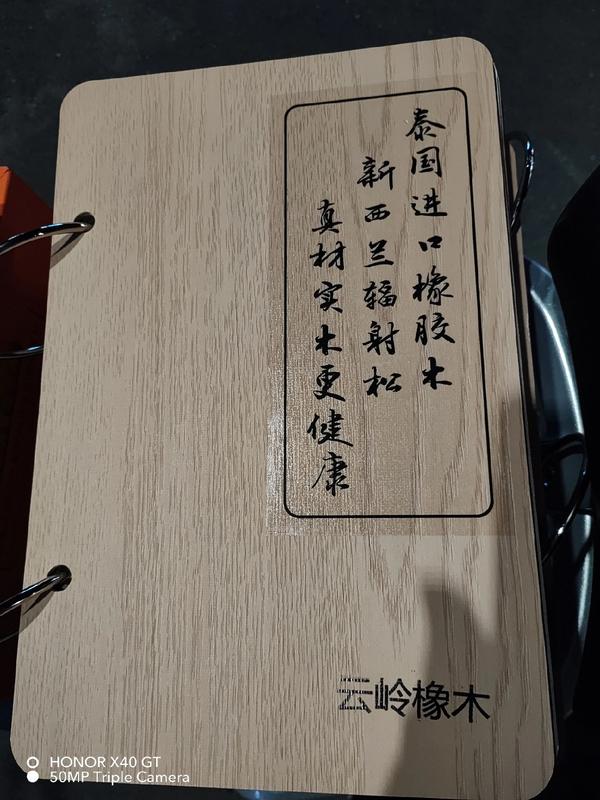 泰国进口橡胶木
新西兰辐射松
真材实木更健康
云岭橡木
HONOR X40 GT
50MP Triple Camera